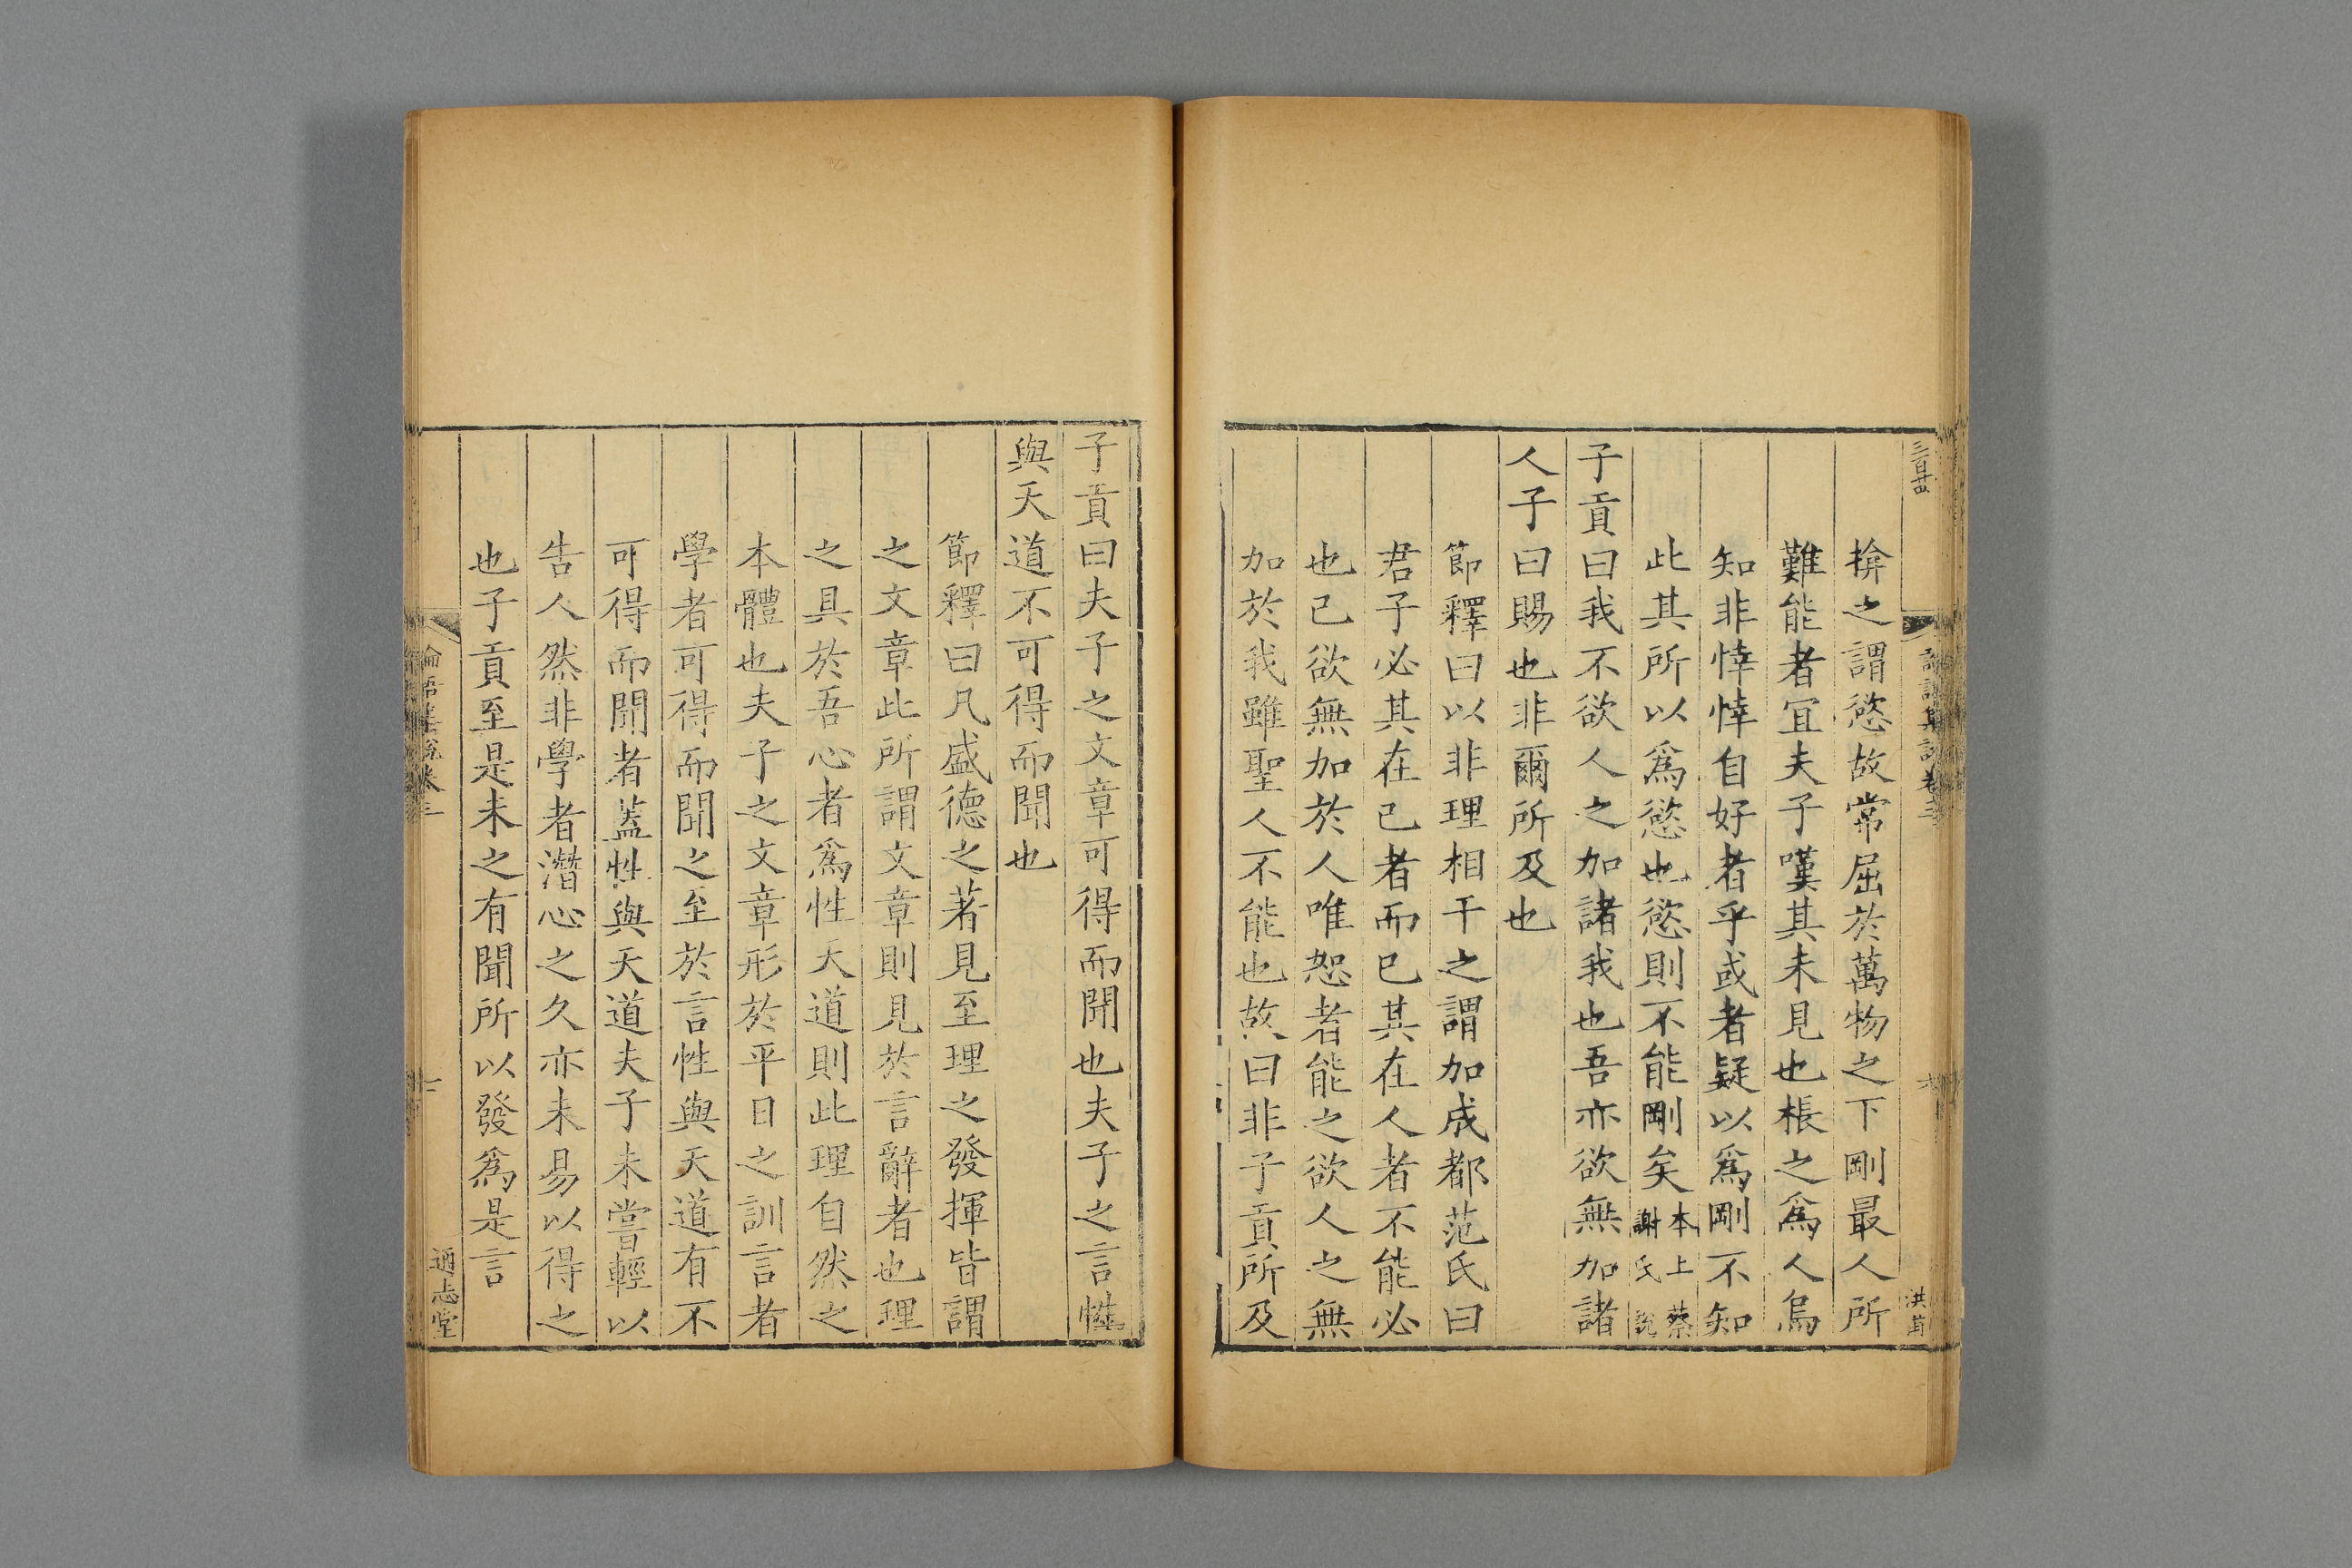 三百廿四
論語集說卷三
六
洪茁
揜之謂慾故常屈於萬物之下剛最人所
難能者宜夫子嘆其未見也棖之爲人烏
知非悻悻自好者乎或者疑以爲剛不知
此其所以爲慾也慾則不能剛矣本上蔡謝氏說
子貢曰我不欲人之加諸我也吾亦欲無加諸
人子曰賜也非爾所及也
節釋曰以非理相干之謂加成都范氏曰
君子必其在己者而已其在人者不能必
也己欲無加於人唯恕者能之欲人之無
加於我雖聖人不能也故曰非子貢所及
子貢曰夫子之文章可得而聞也夫子之言性
與天道不可得而聞也
節釋曰凡盛德之著見至理之發揮皆謂
之文章此所謂文章則見於言辭者也理
之具於吾心者爲性天道則此理自然之
本體也夫子之文章形於平日之訓言者
學者可得而聞之至於言性與天道有不
可得而聞者蓋性與天道夫子未嘗輕以
告人然非學者潛心之久亦未易以得之
也子貢至是未之有聞所以發爲是言
論語集說卷三
通志堂